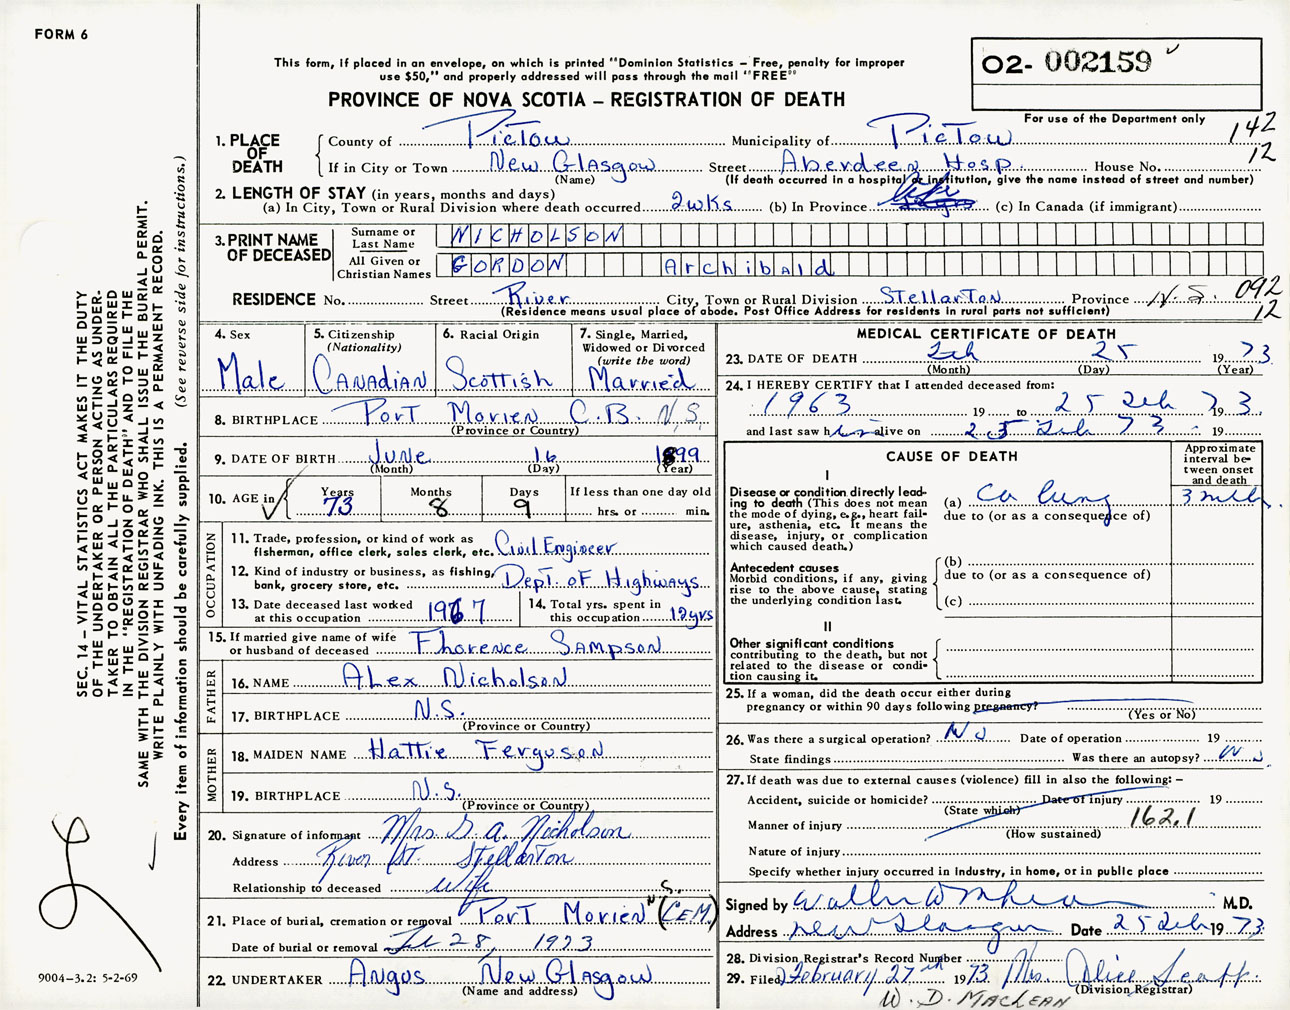 FORM 6
This form, if placed in an envelope, on which is printed "Dominion Statistics – Free, penalty for improper
use $50," and properly addressed will pass through the mail "FREE"
PROVINCE OF NOVA SCOTIA – REGISTRATION OF DEATH
O2- 002159
For use of the Department only
142
12
1. PLACE OF DEATH
County of Pictou Municipality of Pictou
If in City or Town New Glasgow Street Aberdeen Hosp. House No.
(Name) (If death occurred in a hospital or institution, give the name instead of street and number)
2. LENGTH OF STAY (in years, months and days)
(a) In City, Town or Rural Division where death occurred 2 wks (b) In Province life (c) In Canada (if immigrant)
3. PRINT NAME OF DECEASED
Surname or Last Name NICHOLSON
All Given or Christian Names GORDON Archibald
RESIDENCE No. Street River City, Town or Rural Division Stellarton Province N.S. 092
(Residence means usual place of abode. Post Office Address for residents in rural parts not sufficient) 12
4. Sex
Male
5. Citizenship
(Nationality)
Canadian
6. Racial Origin
Scottish
7. Single, Married,
Widowed or Divorced
(write the word)
Married
8. BIRTHPLACE Port Morien C.B. N.S.
(Province or Country)
9. DATE OF BIRTH June 16 1899
(Month) (Day) (Year)
10. AGE in Years 73 Months 8 Days 9 If less than one day old
hrs. or min.
OCCUPATION
11. Trade, profession, or kind of work as
fisherman, office clerk, sales clerk, etc. Civil Engineer
12. Kind of industry or business, as fishing,
bank, grocery store, etc. Dept. of Highways
13. Date deceased last worked
at this occupation 1967
14. Total yrs. spent in
this occupation 12 yrs
15. If married give name of wife
or husband of deceased Florence Sampson
FATHER
16. NAME Alex Nicholson
17. BIRTHPLACE N.S.
(Province or Country)
MOTHER
18. MAIDEN NAME Hattie Ferguson
19. BIRTHPLACE N.S.
(Province or Country)
20. Signature of informant Mrs. G. A. Nicholson
Address River St. Stellarton
Relationship to deceased wife
21. Place of burial, cremation or removal Port Morien N.S. (CEM)
Date of burial or removal Feb 28, 1973
22. UNDERTAKER Angus New Glasgow
(Name and address)
MEDICAL CERTIFICATE OF DEATH
23. DATE OF DEATH Feb 25 1973
(Month) (Day) (Year)
24. I HEREBY CERTIFY that I attended deceased from:
1963 19 to 25 Feb 1973.
and last saw him alive on 25 Feb 73. 19
CAUSE OF DEATH
Approximate
interval be-
tween onset
and death
I
Disease or condition directly lead-
ing to death (This does not mean
the mode of dying, e.g., heart fail-
ure, asthenia, etc. It means the
disease, injury, or complication
which caused death.)
(a) Ca lung 3 mths.
due to (or as a consequence of)
Antecedent causes
Morbid conditions, if any, giving
rise to the above cause, stating
the underlying condition last.
(b)
due to (or as a consequence of)
(c)
II
Other significant conditions
contributing to the death, but not
related to the disease or condi-
tion causing it.
25. If a woman, did the death occur either during
pregnancy or within 90 days following pregnancy?
(Yes or No)
26. Was there a surgical operation? No Date of operation 19
State findings Was there an autopsy? No
27. If death was due to external causes (violence) fill in also the following: –
Accident, suicide or homicide? Date of injury 19
(State which)
Manner of injury 162.1
(How sustained)
Nature of injury
Specify whether injury occurred in industry, in home, or in public place
Signed by M.D.
Address New Glasgow Date 25 Feb 1973.
28. Division Registrar's Record Number
29. Filed February 27th 1973 Mrs. Alice Scott
(Division Registrar)
W. D. MacLean
SEC. 14 – VITAL STATISTICS ACT MAKES IT THE DUTY
OF THE UNDERTAKER OR PERSON ACTING AS UNDER-
TAKER TO OBTAIN ALL THE PARTICULARS REQUIRED
IN THE "REGISTRATION OF DEATH" AND TO FILE THE
SAME WITH THE DIVISION REGISTRAR WHO SHALL ISSUE THE BURIAL PERMIT.
WRITE PLAINLY WITH UNFADING INK. THIS IS A PERMANENT RECORD.
Every item of information should be carefully supplied. (See reverse side for instructions.)
9004-3.2: 5-2-69